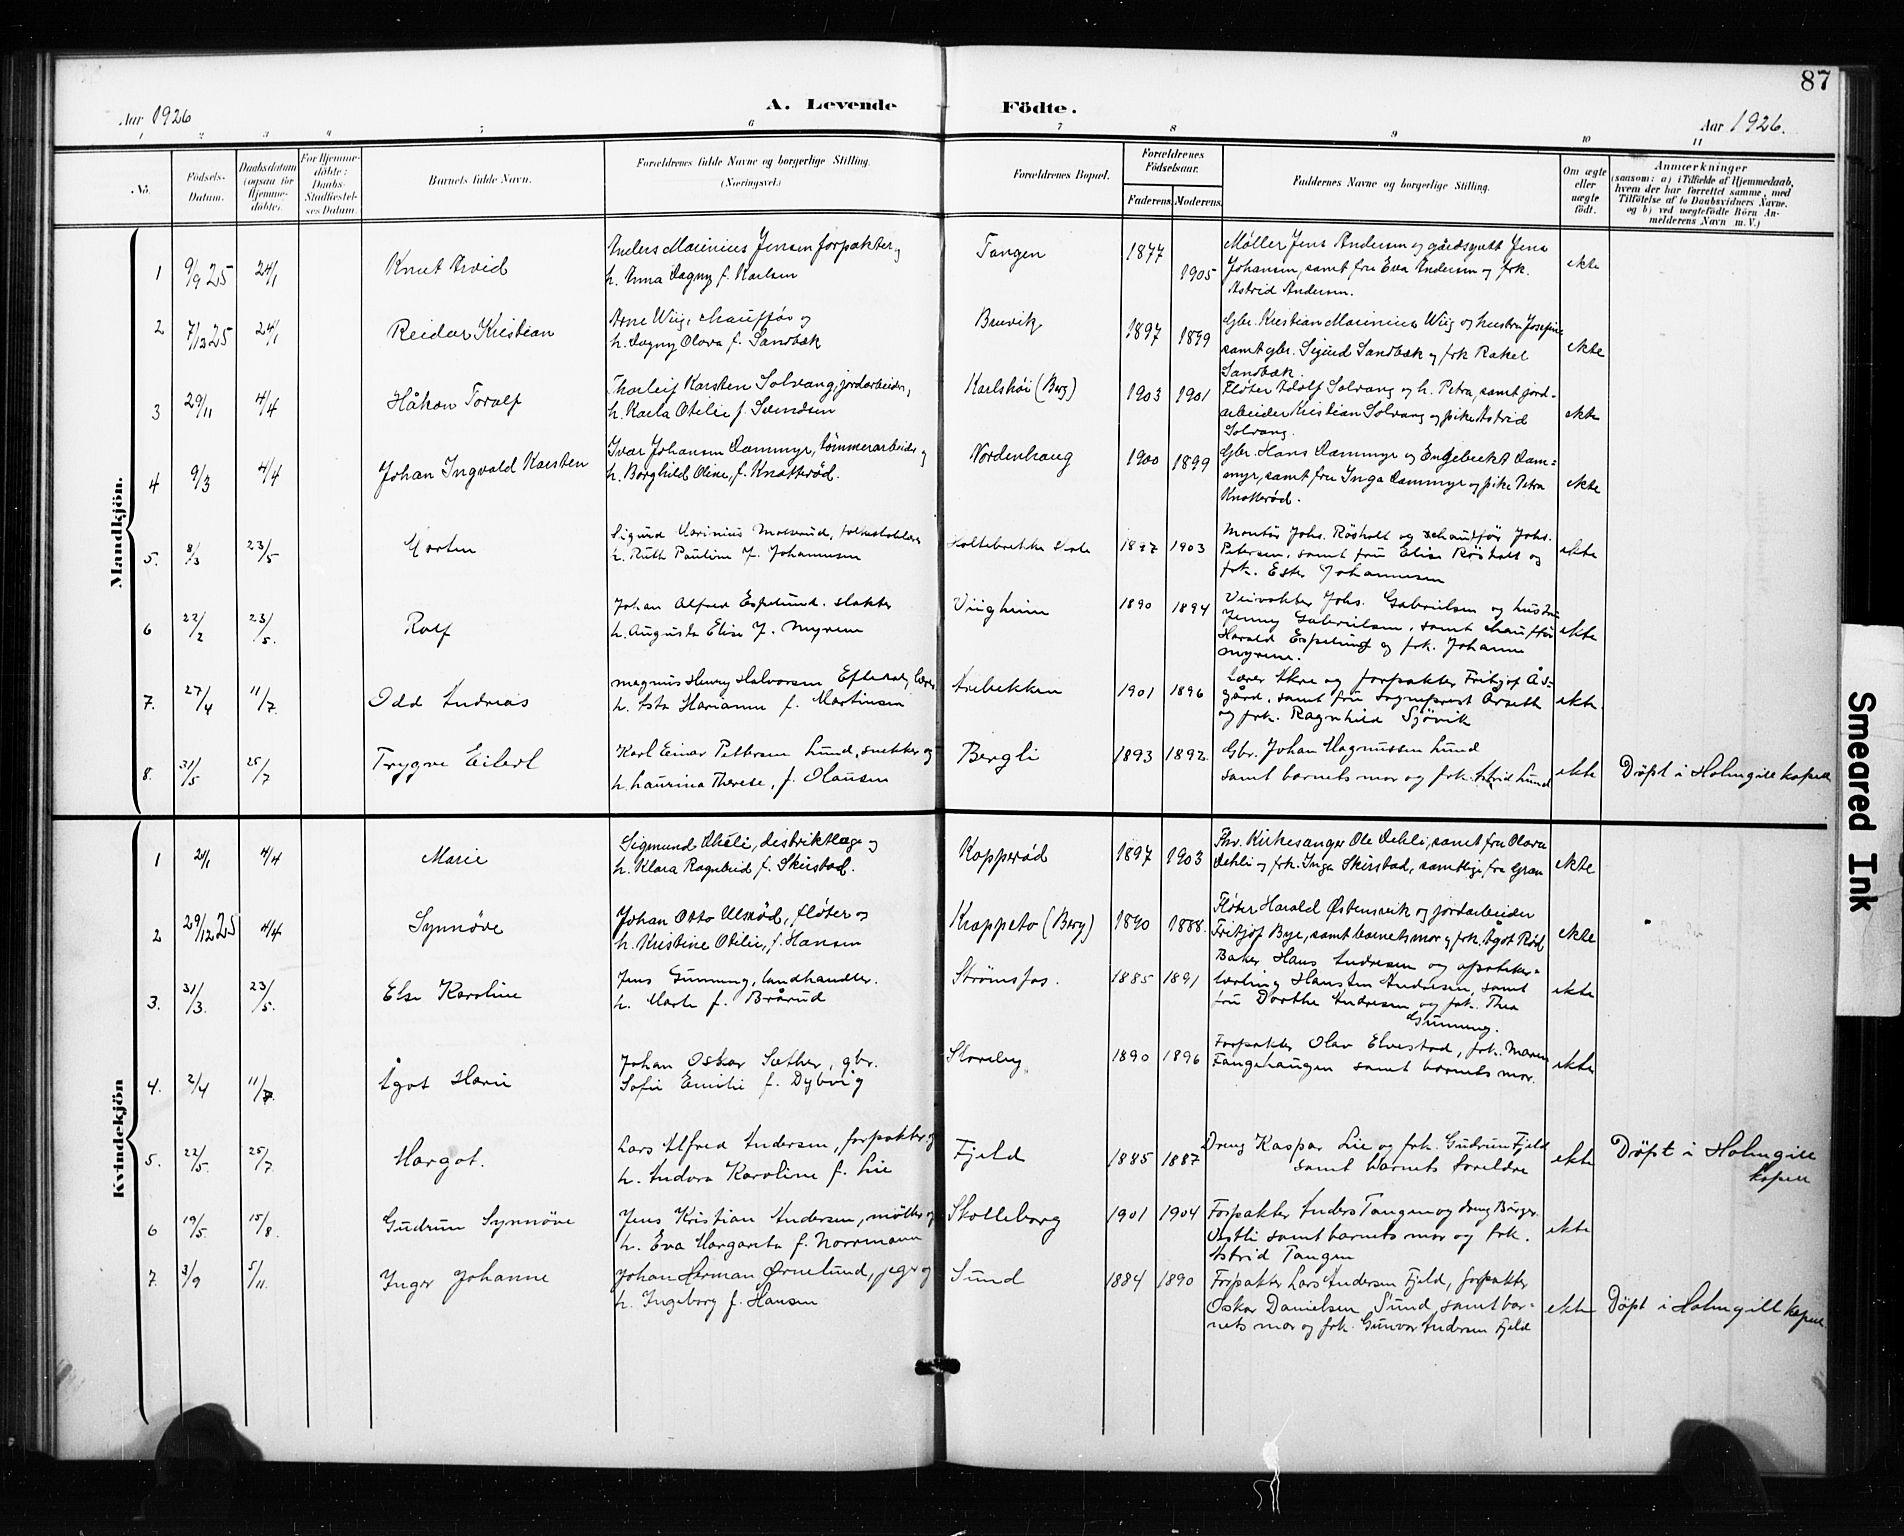 87
Aar 1926
A. Levende Födte.
Aar 1926.
1 2 3 4 5 6 7 8 9 10 11
No.
Födsels-
Datum.
Daabsdatum
(ogsaa for
Hjemme-
döbte).
For Hjemme-
döbte:
Daabs-
Stadfæstel-
ses Datum.
Barnets fulde Navn.
Forældrenes fulde Navne og borgerlige Stilling.
(Næringsvei.)
Forældrenes Bopæl.
Forældrenes
Födselsaar.
Faderens. Moderens.
Faddernes Navne og borgerlige Stilling.
Om ægte
eller
uægte
födt.
Anmærkninger
(saasom: a) i Tilfælde af Hjemmedaab,
hvem der har forrettet samme, med
Tilföielse af to Daabsvidners Navne,
og b) ved uægtefödte Börn An-
melderens Navn m. V.)
Mandkjön.
1 9/9 25 24/1 Knut Arvid
Anders Marinius Jensen forpakter og
h. Anna Dagny f. Karlsen
Tangen 1877 1905
Møller Jens Andersen og gårdsgutt Jens
Johansen, samt fru Eva Andersen og frk.
Astrid Andersen.
ekte
2 7/12 25 24/1 Reidar Kristian
Arne Wiig, chauffør og
h. Dagny Olova f. Sandbæk
Bruvik 1897 1899
Gbr. Kristian Marinius Wiig og hustru Josefine
samt gbr. Sigurd Sandbæk og frk Rakel
Sandbæk.
ekte
3 29/11 4/4 Håkon Toralf
Thorleif Karsten Solvang, jordarbeider,
h. Karla Otilie f. Svendsen
Karlshøi (Berg) 1903 1901
Fløter Adolf Solvang og h. Petra, samt jord-
arbeider Kristian Solvang og pike Astrid
Solvang.
ekte
4 9/3 4/4 Johan Ingvald Karsten
Ivar Johansen Dammyr, tømmerarbeider og
h. Borghild Oline, f. Knatterød.
Nordenhaug 1900 1899
Gbr. Hans Dammyr og Engebrekt Dam-
myr, samt fru Inga Dammyr og pike Petra
Knatterød.
ekte
5. 8/3 23/5 Morten
h. Ruth Pauline f. Johannesen
1903
Montør Johs. Røsholt og chauffør Johs.
Petersen, samt fru Elise Røsholt og
frk. Ester Johannesen
ekte
6 22/2 23/5. Rolf
Johan Alfred Espelund. slakter
h. Augusta Elise f. Myrene
Viigheim 1890 1894
Veivokter Johs. Gabrielsen og hustru
Jenny Gabrielsen, samt chauffør
Harald Espelund og frk. Johanne
Myrene.
ekte
7. 27/4 11/7. Odd Andreas
Magnus Henry Halvorsen lærer
h. Asta Marianne f. Martinsen
Arebekken 1901 1896
Lærer Akre og forpakter Fritjof Ås-
gård, samt fru sogneprest Arseth
og frk. Ragnhild Sjøvik
ekte.
8. 31/5 25/7 Trygve Eilert
Karl Einar Pettersen Lund, snekker og
h. Laurina Therese, f. Olausen
Bergli 1893 1892.
Gbr. Johan Magnussen Lund
samt barnets mor og frk. Astrid Lund
ekte Döpt i Holmgill kapell
Kvindekjön
1 21/1 4/4 Marie
Sigmund Dhæli, distriktlæge og
h. Klara Ragnhild f. Skirstad.
Kopperød 1897 1903
Fhv. Kirkesanger Ole Dehli, samt fru Olava
Dehli og frk. Inga Skirstad, samtlige fra Gran
ekte
2 29/12 25 4/4 Synnøve
Johan Otto Ulsrød, fløter og
h. Kristine Otilie, f. Hansen
Krappeto (Berg) 1890 1888.
Fløter Harald Østensvik og jordarbeider
Fritjof Bye, samt barnets mor og frk. Ågot Rød
ekte
3. 31/3 23/5. Else Karoline
Jens Grimeng, landhandler.
h. Marte f. Brårud
Strømsfos. 1885 1891
Baker Hans Andresen og apoteker-
lærling Hansten Andresen, samt
fru Dorthe Andresen og frk. Thea
Grimeng.
ekte
4. 2/4 11/7. Ågot Marie
Johan Oskar Sæther, gbr.
Sofie Emilie f. Dybvig
Storeby 1890 1896
Forpakter Olav Elvestad, frk. Maren
Tangehaugen samt barnets mor.
ekte
5. 22/5. 25/7. Margot.
Lars Alfred Andersen, forpakter og
h. Andora Karoline f. Lie
Fjeld 1885 1887
Dreng Kaspar Lie og frk. Gudrun Fjeld
samt barnets foreldre
ekte Döpt i Holmgill
kapell
6 19/5. 15/8. Gudrun Synnøve
Jens Kristian Andersen, møller og
h. Eva Margareta f. Norrmann
Skolleborg 1901 1904
Forpakter Anders Tangen og dreng Birger
Vestli samt barnets mor og frk.
Astrid Tangen
ekte
7. 3/9 5/11. Inger Johanne
Johan Herman Ørnelund, jeger og
h. Ingeborg f. Hansen
Sund 1884 1890
Forpakter Lars Andersen Fjeld, forpakter
Oskar Danielsen Sund, samt bar-
nets mor og frk. Gunvor Andersen Fjeld
ekte Döpt i Holmgill kapell.
Smeared Ink